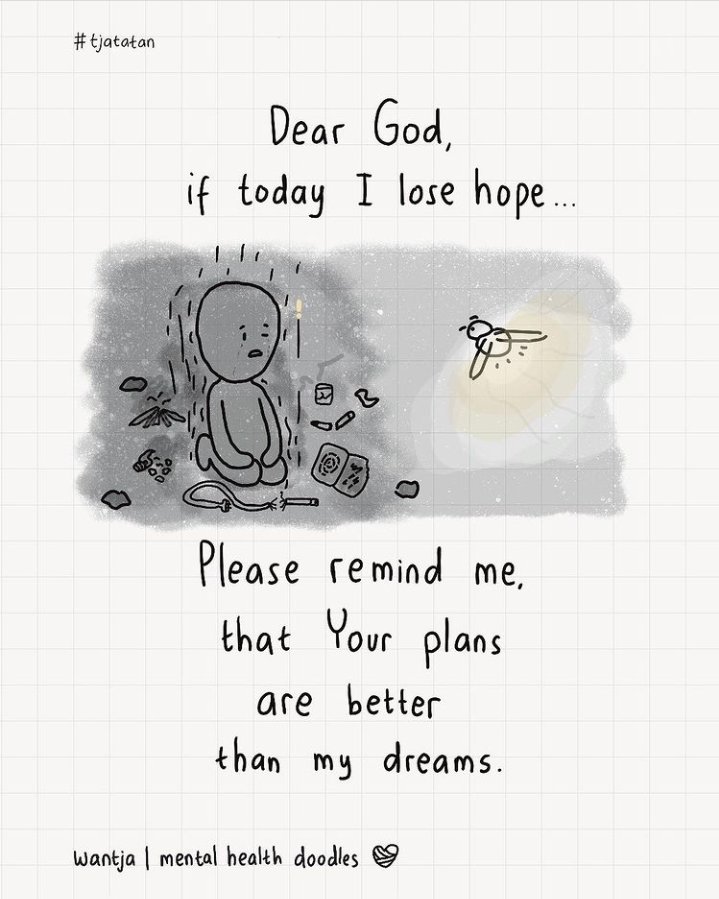 #tjatatan
Dear God,
if today I lose hope...
Please remind me,
that Your plans
are better
than my dreams.
wantja | mental health doodles